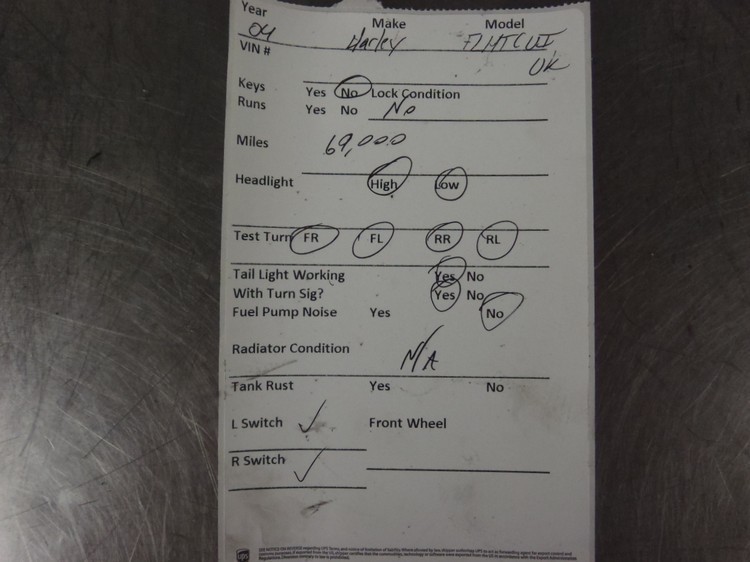 Year Make Model
04 Harley FLHTCUI
VIN # UK
Keys Yes No Lock Condition
Runs Yes No No
Miles 69,000
Headlight High Low
Test Turn FR FL RR RL
Tail Light Working Yes No
With Turn Sig? Yes No
Fuel Pump Noise Yes No
Radiator Condition N/A
Tank Rust Yes No
L Switch ✓ Front Wheel
R Switch ✓
ups